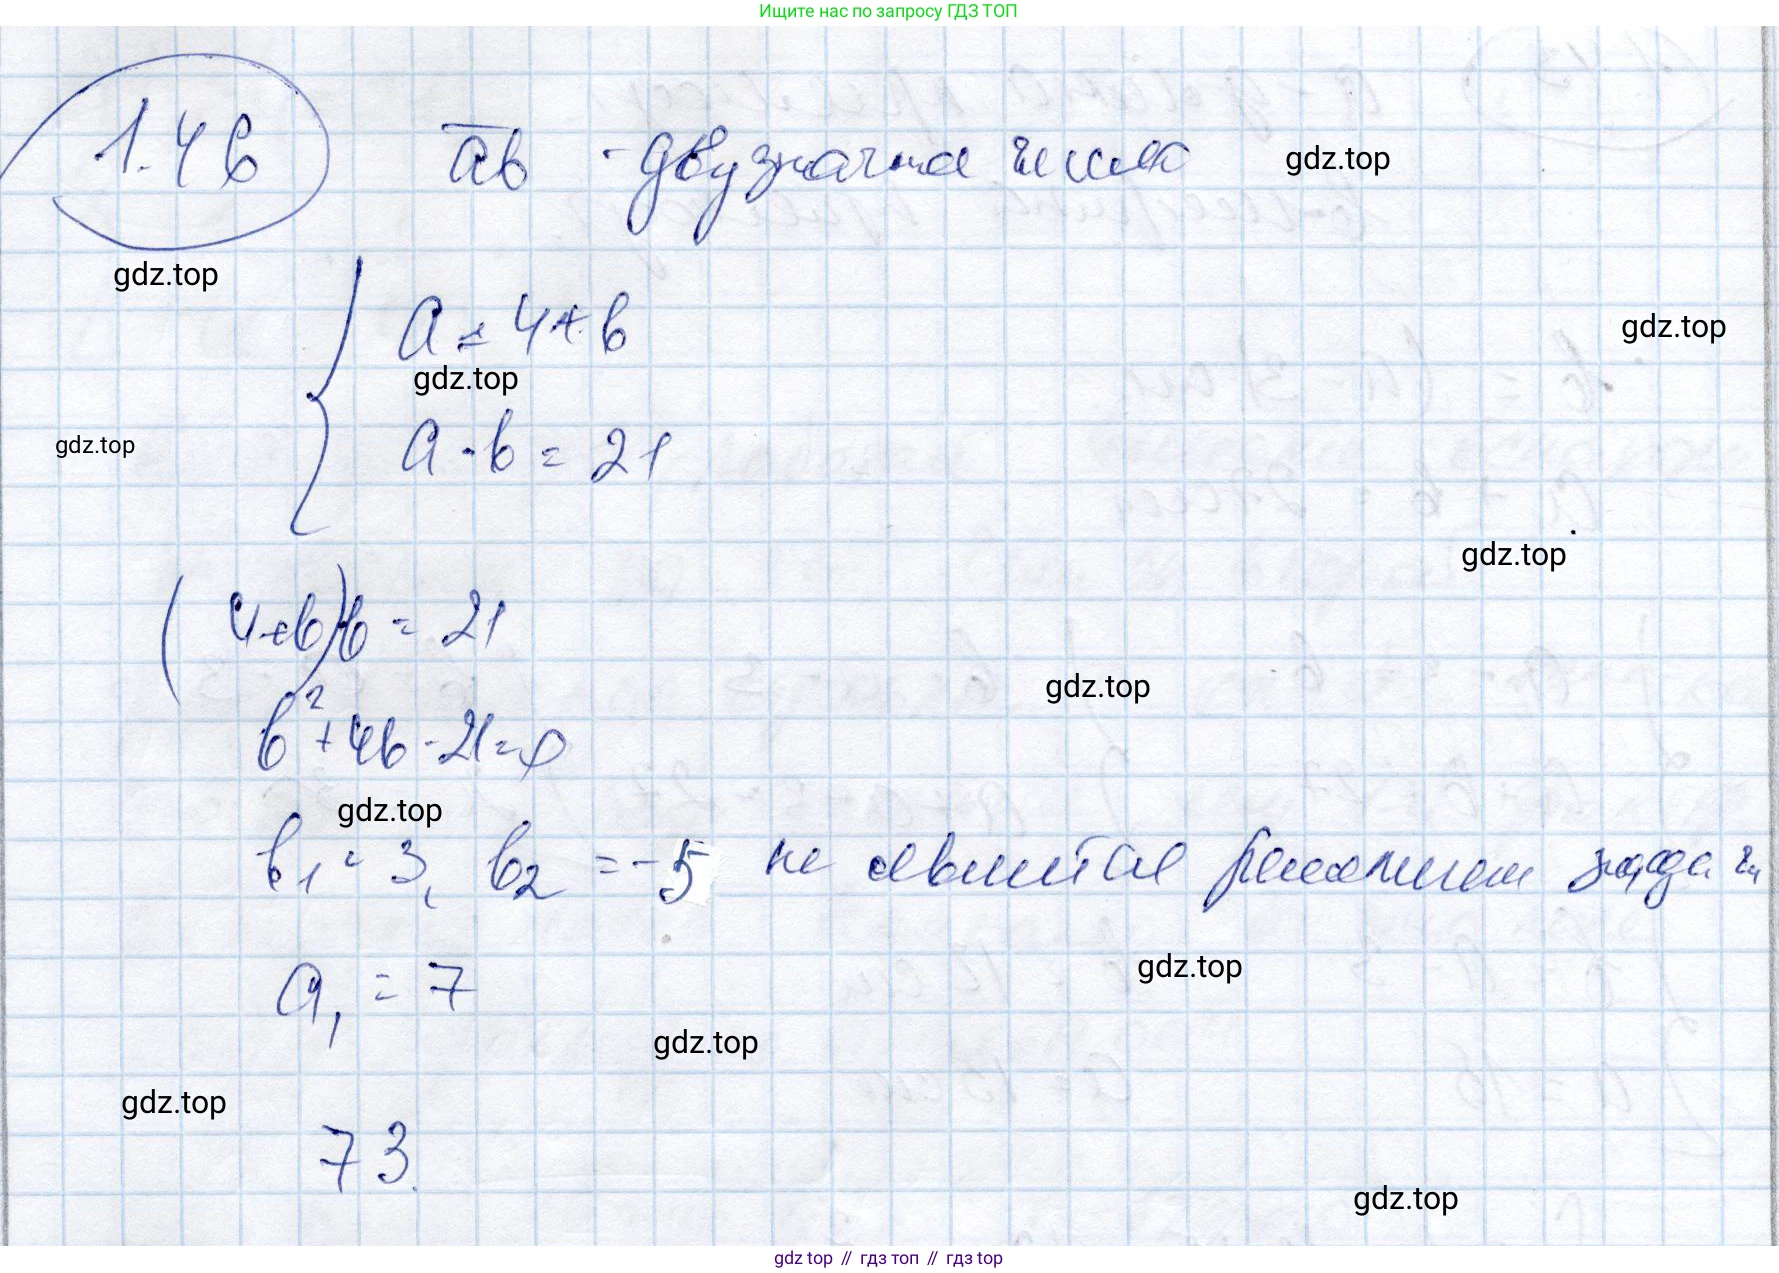 Ищите нас по запросу ГДЗ ТОП
1.46 ab - двузначное число gdz.top
gdz.top
a = 4 + b
gdz.top
gdz.top
gdz.top
a · b = 21
gdz.top
(4+b)b = 21
gdz.top
b² + 4b - 21 = 0
gdz.top
b₁ = 3, b₂ = -5 не является решением задачи
gdz.top
a₁ = 7
gdz.top
gdz.top
73.
gdz.top
gdz top // гдз топ // гдз top